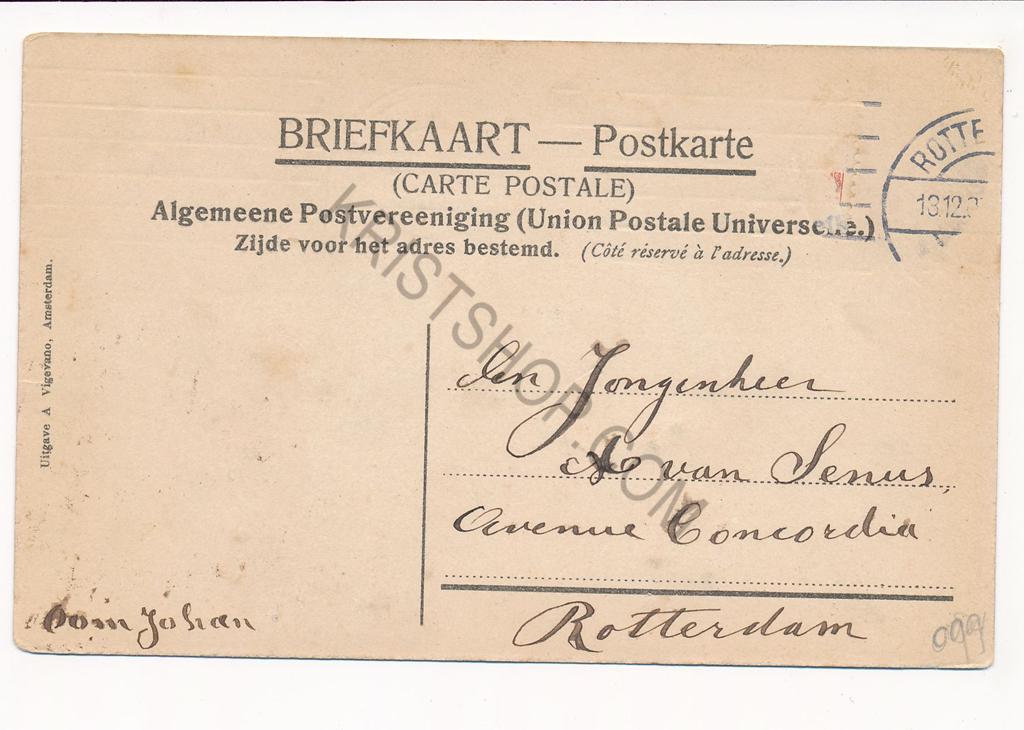 BRIEFKAART — Postkarte
(CARTE POSTALE)
Algemeene Postvereeniging (Union Postale Universelle.)
Zijde voor het adres bestemd. (Côté réservé à l'adresse.)
ROTTE
13.12.0
Uitgave A Vigevano, Amsterdam.
KRISTSHOP.COM
den Jongenheer
A van Senus,
Avenue Concordia
Rotterdam
Oom Johan
099